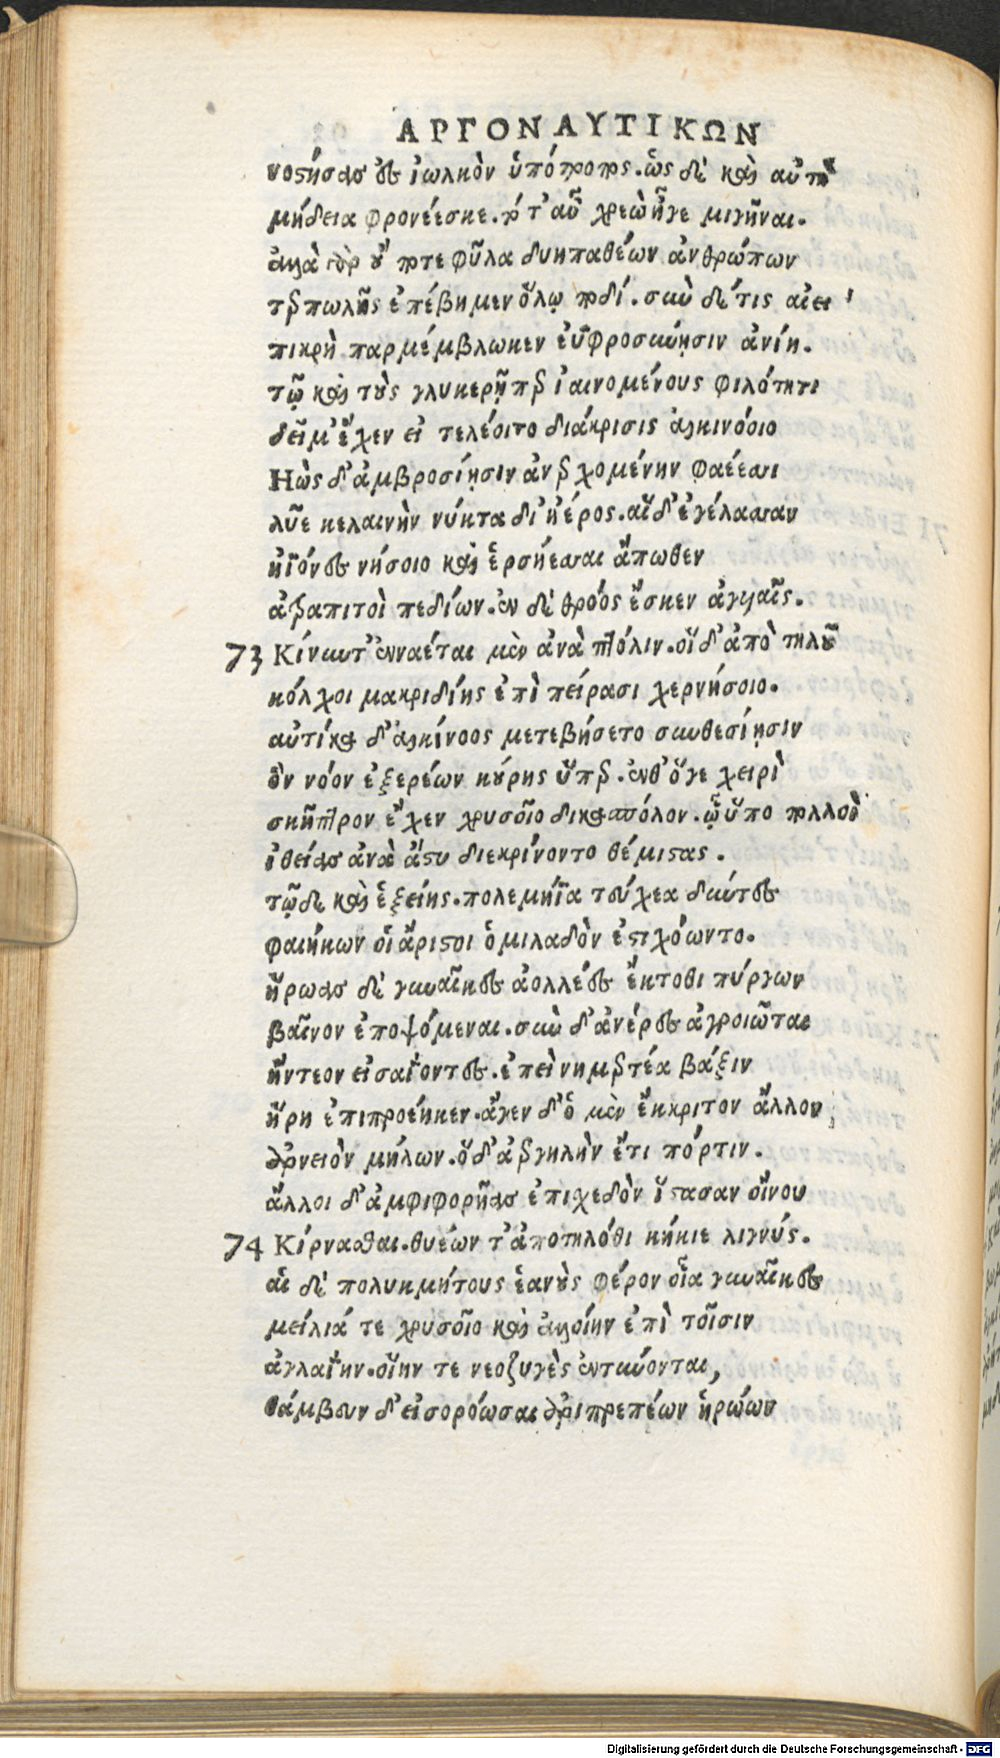 ΑΡΓΟΝΑΥΤΙΚΩΝ
νοστήσας ἐς ἰωλκὸν ὑπότροπος. ὣς δὲ καὶ αὐτὴ
μήδεια φρονέεσκε. τότ' αὖ χρεὼ ἦγε μιγῆναι.
ἀλλὰ γὰρ οὔ ποτε φῦλα δυηπαθέων ἀνθρώπων
τερπωλῆς ἐπέβημεν ὅλῳ ποδί. σὺν δέ τις αἰεὶ
πικρὴ παρμέμβλωκεν ἐϋφροσύνῃσιν ἀνίη.
τῷ καὶ τοὺς γλυκερῇ περ ἰαινομένους φιλότητι
δεῖμ' ἔχεν εἰ τελέοιτο διάκρισις ἀλκινόοιο
Ηὼς δ' ἀμβροσίῃσιν ἀνερχομένην φαέεσσι
λῦε κελαινὴν νύκτα δι' ἠέρος. αἵδ' ἐγέλασσαν
ἠϊόνες νήσοιο καὶ ἑρσήεσσαι ἄπωθεν
ἀτραπιτοὶ πεδίων. ἐν δὲ θρόος ἔσκεν ἀγυιαῖς.
73 Κίνυντ' ἐνναέται μὲν ἀνὰ πτόλιν. οἵ δ' ἀπὸ τηλοῦ
κόλχοι μακριδίης ἐπὶ πείρασι χερνήσοιο.
αὐτίκα δ' ἀλκίνοος μετεβήσετο συνθεσίῃσιν
ὃν νόον ἐξερέων κούρης ὕπερ. ἐνθ' ὅγε χειρὶ
σκῆπτρον ἔχεν χρυσοῖο δικασπόλον. ᾧ ὕπο πολλοὶ
ἰθείας ἀνὰ ἄστυ διεκρίνοντο θέμιστας.
τῷ δὲ καὶ ἑξείης. πολεμήϊα τεύχεα δύντες
φαιήκων οἱ ἄριστοι ὁμιλαδὸν ἐστιχόωντο.
ἥρωας δὲ γυναῖκες ἀολλέες ἔκτοθι πύργων
βαῖνον ἐποψόμεναι. σὺν δ' ἀνέρες ἀγροιῶται
ἤντεον εἰσαΐοντες. ἐπεὶ νημερτέα βάξιν
ἥρη ἐπιπροέηκεν. ἄγεν δ' ὁ μὲν ἔκκριτον ἄλλον
ἀρνειὸν μήλων. ὅδ' ἀεργηλὴν ἔτι πόρτιν.
ἄλλοι δ' ἀμφιφορῆας ἐπισχεδὸν ἵστασαν οἴνου
74 Κίρνασθαι. θυέων τ' ἀποτηλόθι κήκιε λιγνύς.
αἱ δὲ πολυκμήτους ἑανοὺς φέρον οἷα γυναῖκες
μείλιά τε χρυσοῖο καὶ ἀλλοίην ἐπὶ τοῖσιν
ἀγλαΐην. οἵην τε νεοζυγὲς ἐντύνονται,
θάμβευν δ' εἰσορόωσαι ἀριπρεπέων ἡρώων
Digitalisierung gefördert durch die Deutsche Forschungsgemeinschaft - DFG